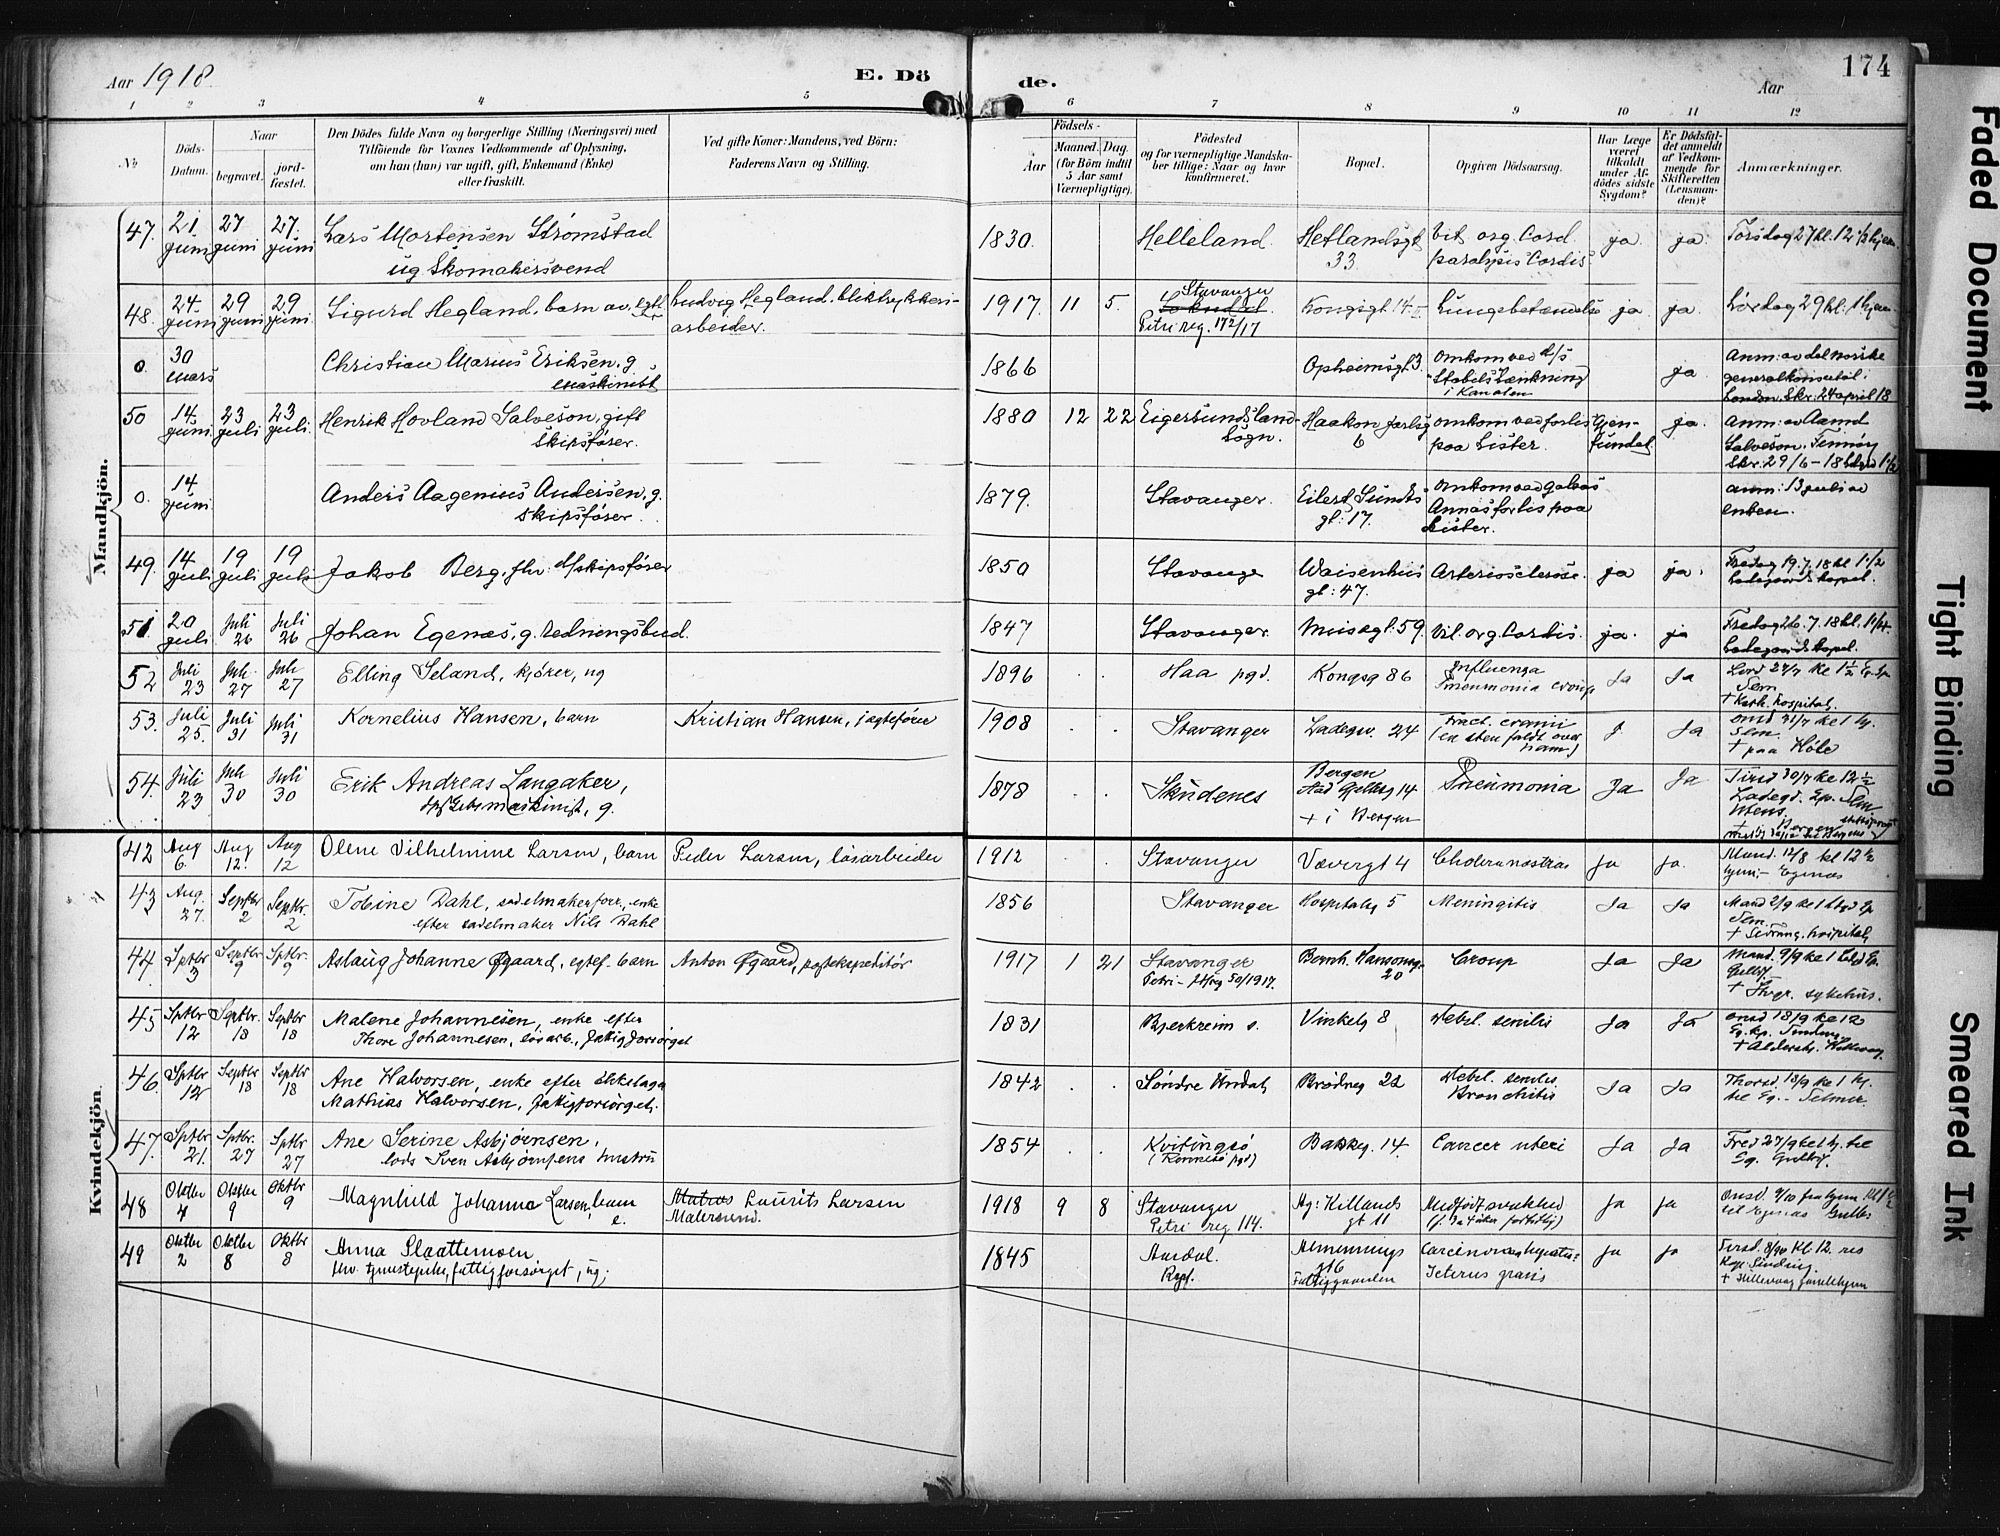 Aar 1918. E. Dö de. Aar 174
1 2 3 4 5 6 7 8 9 10 11 12
No
Döds-
Datum.
Naar
begravet.
jord-
fæstet.
Den Dödes fulde Navn og borgerlige Stilling (Næringsvei) med
Tilföiende för Voxnes Vedkommende af Oplysning,
om han (hun) var ugift, gift, Enkemand (Enke)
eller fraskilt.
Ved gifte Koner: Mandens, ved Börn:
Faderens Navn og Stilling.
Födsels-
Aar
Maaned. Dag.
(for Börn indtil
5 Aar samt
Værnepligtige).
Födested
og for værnepligtige Mandska-
ber tillige: Naar og hvor
konfirmeret.
Bopæl.
Opgiven Dödsaarsag.
Har Læge
været
tilkaldt
under Af-
dödes sidste
Sygdom?
Er Dödsfal-
det anmeldt
af Vedkom-
mende for
Skifteretten
(Lensman-
den)?
Anmærkninger.
Mandkjön.
47. 21 juni 27 juni 27. juni Lars Mortensen Strømstad
ug Skomakersvend
1830. Helleland. Hetlandsgt 33 vit. org. Cord.
paralysis Cordis. ja. ja. Torsdag 27 kl. 12 1/2 hjem
48. 24 juni 29 juni 29 juni. Sigurd Hegland, barn av egtf.
Ludvig Hegland, bliktrykkeri-
arbeider.
1917. 11 5. Stavanger
Sokndal
Petri reg. 172/17 Kongsgt 14 Lungebetændelse ja ja. Lørdag 29 kl. 1 hjem
0. 30 mars Christian Marius Eriksen, g.
maskinist
1866 Opheimsgt. 3 omkom ved d/s
"Stabils" Sænkning
i Kanalen ja. Anm: av det norske
generalkonsulat i
London. Skr. 24 april 18
50 14. juni 23 juli 23 juli. Henrik Hovland Salveson, gift
Skipsfører.
1880 12 22 Eigersunds land-
sogn. Haakon Jarlsg 6 omkom ved forlis
paa Lister. Gjen-
fundet. ja. Anm: av Aamd
Salveson, Tennøy
Skr. 29/6-18
0. 14 juni Anders Aagenius Andersen, g.
skipsfører.
1879. Stavanger. Eilert Sundts
gt: 17. omkom ved galeas
Annas forlis paa
Lister. anm: 13 juli av
enken.
49. 14 juli 19 juli 19 juli Jakob Berg, fhv. d/skipsfører
1850 Stavanger Waisenhus
gt: 47. Arteriosclerose. ja ja. Fredag 19.7.18 kl 1 1/2
Ladegaardskapel.
51. 20 juli Juli 26 Juli 26 Johan Egenæs, g. Redningsbud.
1847 Stavanger. Musegt. 59. Vit. org. Cordis. ja. ja Fredag 26.7.18 kl. 1 1/4
Ladegaardskapel.
52 Juli 23 Juli 27 Juli 27 Elling Seland, kjører, ug
1896 . . Haa pgd. Kongsg 86 Influenza
Pneumonia croup. Ja Ja Lørd 27/7 kl 1 1/2
Sem.
+ Kath. hospital.
53. Juli 25. Juli 31 Juli 31 Kornelius Hansen, barn
Kristian Hansen, jagtefører
1908 . . Stavanger Ladegv. 24 Fract. cranii
(en sten faldt over
ham) J. Ja onsd 31/7 kl 1 hj.
Sem.
+ paa Høle
54. Juli 23 Juli 30 Juli 30 Erik Andreas Langaker,
g.
1878 . . Skudenes Bergen
14
+ i Bergen Pneumonia Ja Ja Tirsd 30/7 kl 12 1/2
Ladegd. Sem
Kvindekjön
42 Aug 6. Aug 12. Aug 12 Oline Vilhelmine Larsen, barn
Peder Larsen, løsarbeider
1912 . . Stavanger Vævergt 4 Cholera nostras ja ja. Mand. 12/8 kl 12 1/2
hjem - Egenæs
43 Aug. 27. Septbr 2 Septbr. 2 Tobine Dahl, sadelmakerforr., enke
efter sadelmaker Nils Dahl
1856 Stavanger Hospitalsg 5 Meningitis Ja Ja Mand 2/9 kl 1
Sem.
44. Sptbr 3 Septbr 9 Sptbr. 9 Aslaug Johanne Øgaard, egtef. barn
Anton Øgaard, postekspeditør
1917 1 21 Stavanger
Petri - 50/1917. Bernh. Hansensg.
20 Croup Ja Ja Mand. 9/9 kl 1
+ Stvgr. sykehus.
45 Sptbr 12 Septbr. 18 Septbr 18 Malene Johannesen, enke efter
Thore Johannesen, løsarb., fattigforsörget
1831 Bjerkreim s. Vinkelg 8 Debil. senilis Ja Ja onsd 18/9 kl 12
46. Sptbr 12 Septbr 18 Septbr 18 Ane Halvorsen, enke efter
Mathias Halvorsen, fattigforsörget.
1842 . . Søndre Undal Brødreg 22 Debil. senilis
Bronchitis Ja Ja Thorsd. 18/9 kl 1 hj.
til Eg. - Selmer.
47. Sptbr 21. Sptbr. 27 Sptbr 27 Ane Serine Asbjørnsen,
lods Sven Asbjørnsens hustru
1854 . . Kvitingsø
(Rennesø pgd) Bakkeg. 14. Cancer uteri Ja Ja Fred 27/9 kl 1 hj. til
Eg.
48 Oktbr 4 Oktbr 9 Oktbr 9 Magnhild Johanna Larsen, barn
e.
Matros Laurits Larsen
Malersvend.
1918 9 8 Stavanger
Petri reg 114. Ag: Kiellands
gt 11 Medfødt svakhed ja ja Onsd. 9/10 fra hjem kl 1 1/2
til Egenæs
49 Oktbr 2 Oktbr 8 Oktbr 8 Anna Slaattemoen
fhv. tjenestepike, fattigforsörget, ug.
1845 Aardal.
Ryf. Almennings
gt 6
Fattiggaarden Carcinoma hepatis:
Icterus gravis ja ja Tirsd. 8/10 kl. 12.
Faded Document
Tight Binding
Smeared Ink